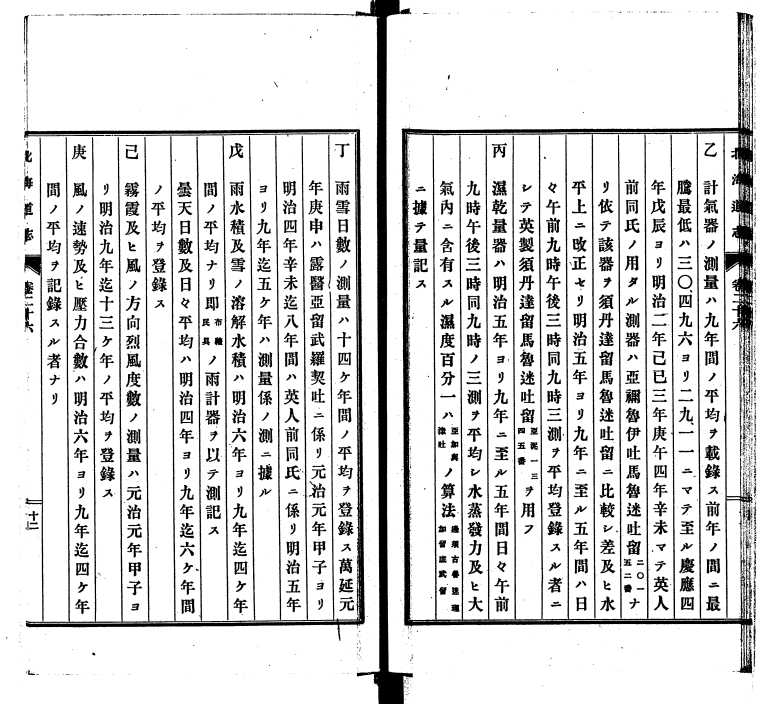 乙 計氣器ノ測量ハ九年間ノ平均ヲ載錄ス前年ノ間ニ最
騰最低ハ三〇四九六ヨリ二九一一ニマテ至ル慶應四
年戊辰ヨリ明治二年己巳三年庚午四年辛未マテ英人
前同氏ノ用タル測器ハ亞禰魯伊吐馬魯迷吐留二〇一五二番ナ
リ依テ該器ヲ須丹達留馬魯迷吐留ニ比較シ差及ヒ水
平上ニ改正セリ明治五年ヨリ九年ニ至ル五年間ハ日
々午前九時午後三時同九時三測ヲ平均登錄スル者ニ
シテ英製須丹達留馬魯迷吐留亞泥一三四五番ヲ用フ
丙 濕乾量器ハ明治五年ヨリ九年ニ至ル五年間日々午前
九時午後三時同九時ノ三測ヲ平均シ水蒸發力及ヒ大
氣內ニ含有スル濕度百分一ハノ算法
ニ據テ量記ス
北海道志 卷二十六
丁 雨雪日數ノ測量ハ十四ケ年間ノ平均ヲ登錄ス萬延元
年庚申ハ露醫亞留武羅契吐ニ係リ元治元年甲子ヨリ
明治四年辛未迄八年間ハ英人前同氏ニ係リ明治五年
ヨリ九年迄五ケ年ハ測量係ノ測ニ據ル
戊 雨水積及雪ノ溶解水積ハ明治六年ヨリ九年迄四ケ年
間ノ平均ナリ即ノ雨計器ヲ以テ測記ス
曇天日數及日々平均ハ明治四年ヨリ九年迄六ケ年間
ノ平均ヲ登錄ス
己 霧霞及ヒ風ノ方向烈風度數ノ測量ハ元治元年甲子ヨ
リ明治九年迄十三ケ年ノ平均ヲ登錄ス
庚 風ノ速勢及ヒ壓力合數ハ明治六年ヨリ九年迄四ケ年
間ノ平均ヲ記錄スル者ナリ
北海道志 卷二十六 十二